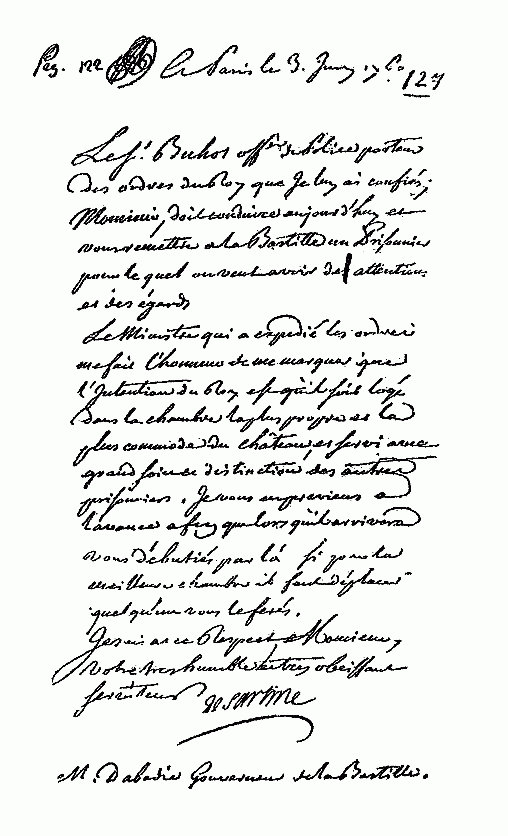 Pag. 122 à Paris le 3. Juin 17
127
Le Sr. Buhot offer de Police porteur
des ordres du Roy que Je luy ai confiés,
Monsieur, doit conduire aujourd'huy et
vous remettre a la Bastille un Prisonnier
pour le quel on veut avoir des attentions
et des égards
Le Ministre qui a expedié les ordres
me fait l'honneur de me marquer que
l'Intention du Roy est qu'il soit logé
dans la chambre la plus propre et la
plus commode du château, et servi avec
grand soin et distinction des autres
prisonniers. Je vous en previens a
l'avance afin que lors qu'il arrivera
vous débutiés par là si pour la
meilleure chambre il faut déplacer
quelqu'un vous le ferés.
Je suis avec Respect Monsieur,
Votre tres humble et tres obeissant
serviteur De Sartine
M. Dabadie Gouverneur de la Bastille.